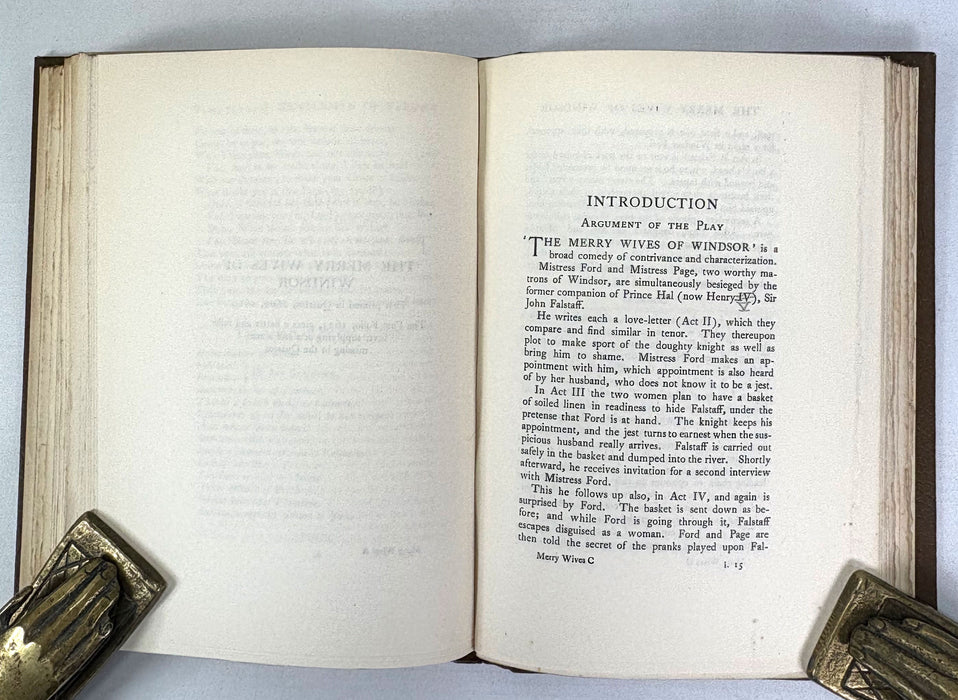 INTRODUCTION
ARGUMENT OF THE PLAY
'THE MERRY WIVES OF WINDSOR' is a
broad comedy of contrivance and characterization.
Mistress Ford and Mistress Page, two worthy ma-
trons of Windsor, are simultaneously besieged by the
former companion of Prince Hal (now Henry IV), Sir
John Falstaff.
He writes each a love-letter (Act II), which they
compare and find similar in tenor. They thereupon
plot to make sport of the doughty knight as well as
bring him to shame. Mistress Ford makes an ap-
pointment with him, which appointment is also heard
of by her husband, who does not know it to be a jest.
In Act III the two women plan to have a basket
of soiled linen in readiness to hide Falstaff, under the
pretense that Ford is at hand. The knight keeps his
appointment, and the jest turns to earnest when the sus-
picious husband really arrives. Falstaff is carried out
safely in the basket and dumped into the river. Shortly
afterward, he receives invitation for a second interview
with Mistress Ford.
This he follows up also, in Act IV, and again is
surprised by Ford. The basket is sent down as be-
fore; and while Ford is going through it, Falstaff
escapes disguised as a woman. Ford and Page are
then told the secret of the pranks played upon Fal-
Merry Wives C
i. 15